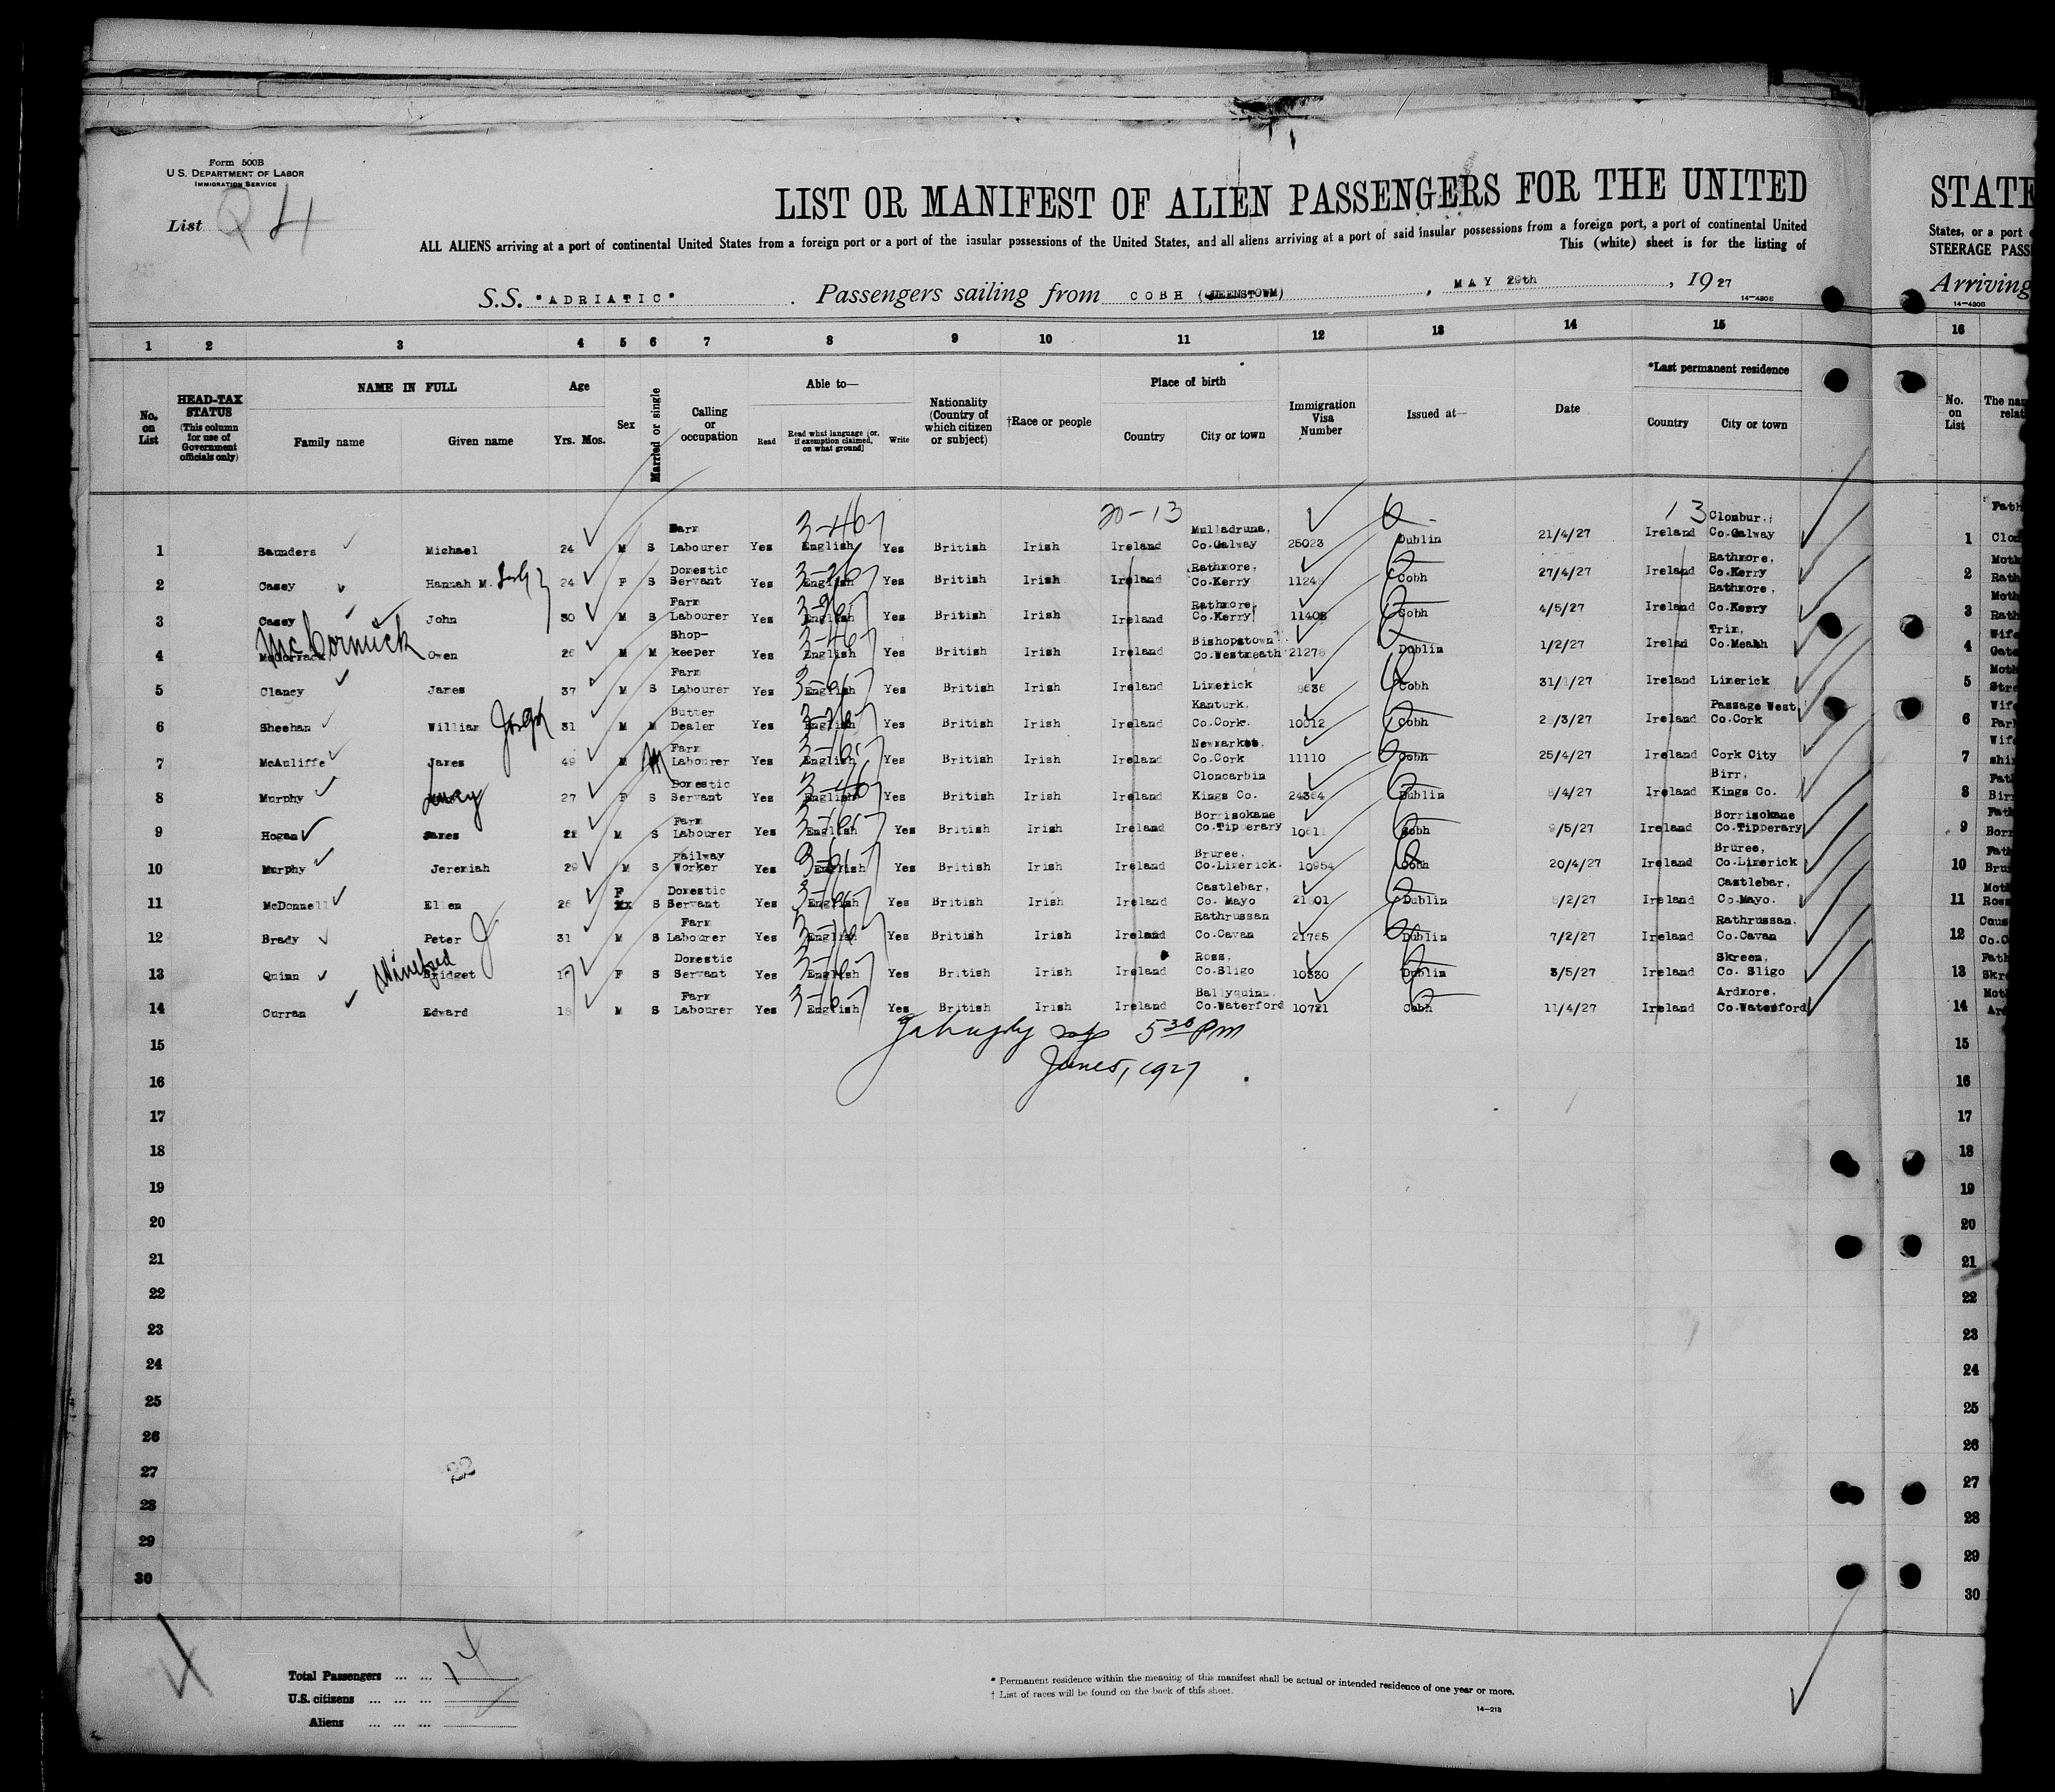 Form 500B
U.S. DEPARTMENT OF LABOR
IMMIGRATION SERVICE
List 4
LIST OR MANIFEST OF ALIEN PASSENGERS FOR THE UNITED
ALL ALIENS arriving at a port of continental United States from a foreign port or a port of the insular possessions of the United States, and all aliens arriving at a port of said insular possessions from a foreign port, a port of continental United
This (white) sheet is for the listing of
S.S. "ADRIATIC" . Passengers sailing from COBH (QUEENSTOWN) , MAY 29th , 1927
14-430B
STATE
States, or a port
STEERAGE PASS
Arriving
14-430B
1 2 3 4 5 6 7 8 9 10 11 12 13 14 15 16
No. on List
HEAD-TAX STATUS (This column for use of Government officials only)
NAME IN FULL Family name Given name
Age Yrs. Mos.
Sex
Married or single
Calling or occupation
Able to— Read Read what language [or, if exemption claimed, on what ground] Write
Nationality (Country of which citizen or subject)
†Race or people
Place of birth Country City or town
Immigration Visa Number
Issued at—
Date
*Last permanent residence Country City or town
No. on List
20-13
1 Saunders Michael 24 M S Farm Labourer Yes English Yes British Irish Ireland Mulladruna, Co.Galway 25023 Dublin 21/4/27 Ireland Clonbur, Co.Galway 1
2 Casey Hannah M. 24 F S Domestic Servant Yes English Yes British Irish Ireland Rathmore, Co.Kerry Cobh 27/4/27 Ireland Rathmore, Co.Kerry 2
3 Casey John 30 M S Farm Labourer Yes English Yes British Irish Ireland Rathmore, Co.Kerry 11408 Cobh 4/5/27 Ireland Rathmore, Co.Kerry 3
4 McCormick Owen M M Shop-keeper Yes English Yes British Irish Ireland Bishopstown Co.Westmeath 21278 Dublin 1/2/27 Irelad Trim, Co.Meath 4
5 Clancy James 37 M S Farm Labourer Yes English Yes British Irish Ireland Limerick Cobh Ireland Limerick 5
6 Sheehan William Joseph 31 M M Butter Dealer Yes English Yes British Irish Ireland Kanturk, Co.Cork. 10012 Cobh Ireland Passage West, Co.Cork 6
7 McAuliffe James 49 M M Farm Labourer Yes English Yes British Irish Ireland Newmarket, Co.Cork 11110 Cobh 25/4/27 Ireland Cork City 7
8 Murphy Mary 27 F S Domestic Servant Yes English Yes British Irish Ireland Cloncarbin Kings Co. Dublin Ireland Birr, Kings Co. 8
9 Hogan James M S Farm Labourer Yes English Yes British Irish Ireland Borrisokane Co.Tipperary Cobh 9/5/27 Ireland Borrisokane Co.Tipperary 9
10 Murphy Jeremiah 29 M S Railway Worker Yes English Yes British Irish Ireland Bruree, Co.Limerick. 10954 Cobh 20/4/27 Ireland Bruree, Co.Limerick 10
11 McDonnell Ellen F S Domestic Servant Yes English Yes British Irish Ireland Castlebar, Co. Mayo Dublin Ireland Castlebar, Co.Mayo. 11
12 Brady Peter J 31 M S Farm Labourer Yes English Yes British Irish Ireland Rathrussan Co.Cavan 21765 Dublin 7/2/27 Ireland Rathrussan, Co.Cavan 12
13 Quinn Winefred Bridget F S Domestic Servant Yes English Yes British Irish Ireland Ross, Co.Sligo 10330 Dublin 3/5/27 Ireland Skreen, Co. Sligo 13
14 Curran Edward 18 M S Farm Labourer Yes English Yes British Irish Ireland Ballyquinn, Co.Waterford 10721 Cobh 11/4/27 Ireland Ardmore, Co.Waterford 14
15 15
5 30 PM
16 16
June 5, 1927
17 17
18 18
19 19
20 20
21 21
22 22
23 23
24 24
25 25
26 26
27 22 27
28 28
29 29
30 30
4
Total Passengers ... ... 14
U.S. citizens ... ... ...
Aliens ... ... ...
* Permanent residence within the meaning of this manifest shall be actual or intended residence of one year or more.
† List of races will be found on the back of this sheet.
14-213